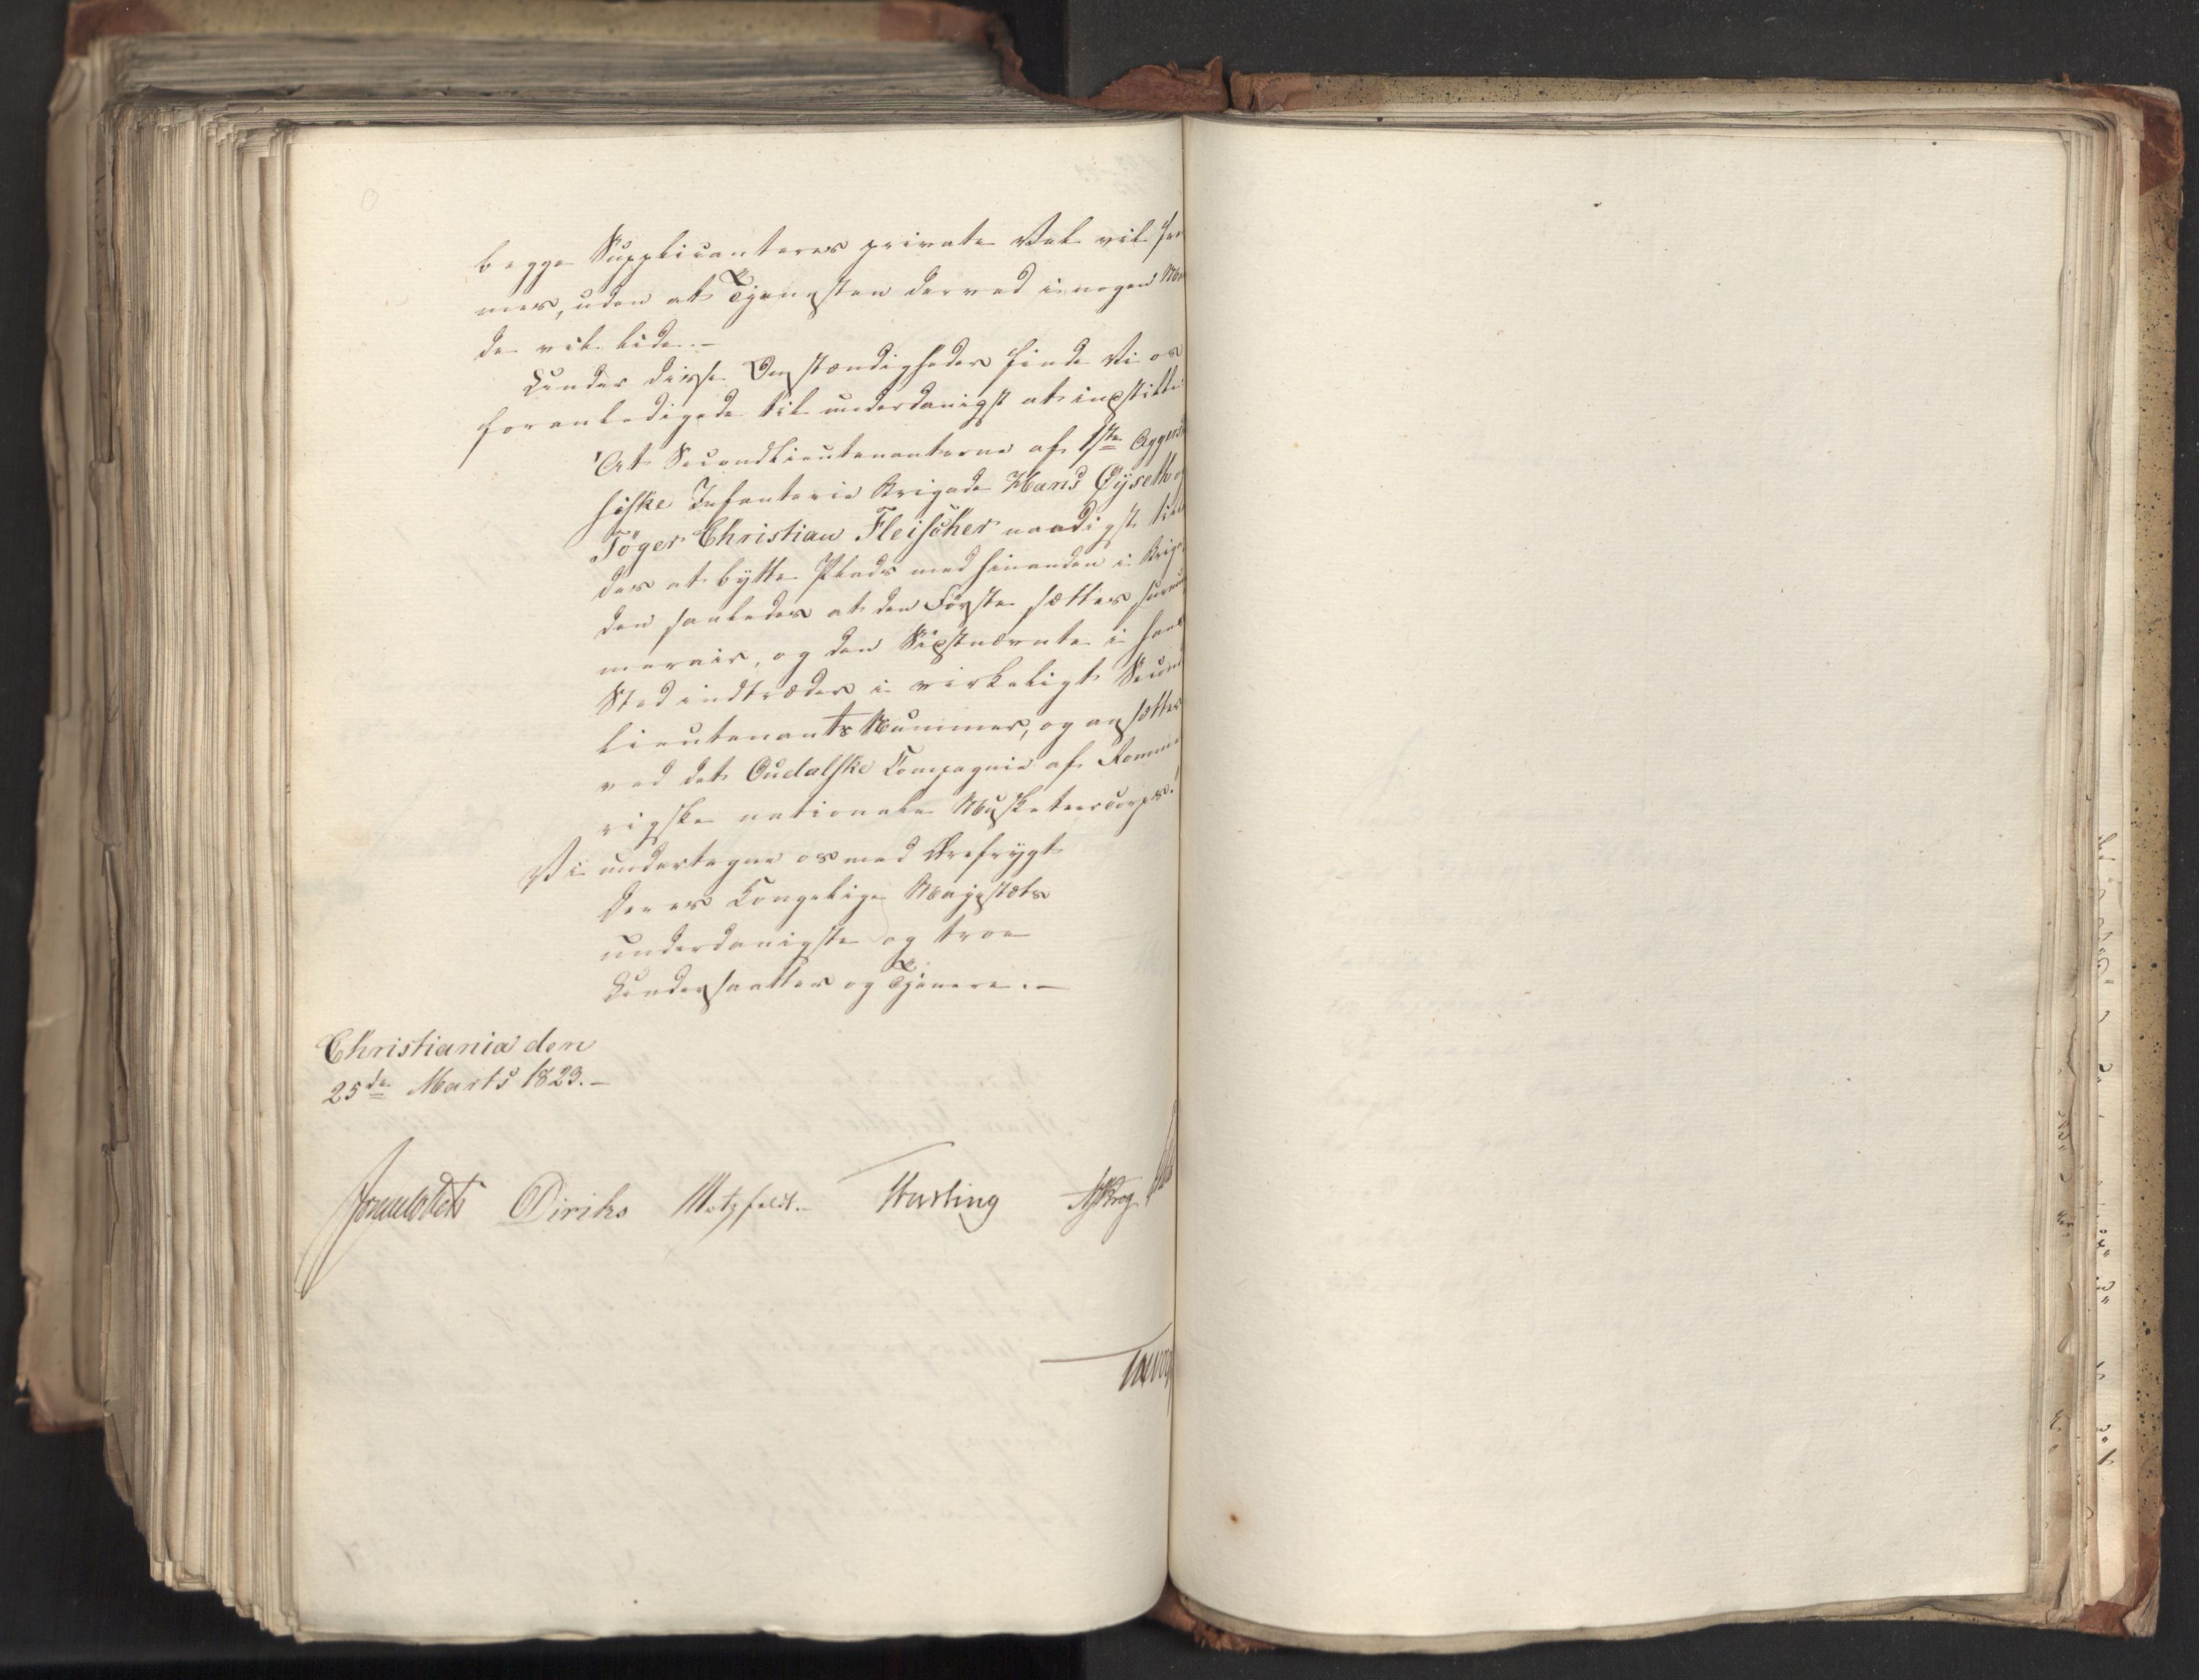 begge Supplicanteres private Vel vil frem
mes, uden at Tjenesten derved i nogen Maa
de vil lide. —
Under disse Omstændigheder finde Vi os
foranledigede til underdanigst at indstille:
"At Secondlieutenanterne af 1ste Aggers
husiske Infanterie Brigade Hans Öÿseth og
Töger Christian Fleischer naadigst tilla
des at bytte Plads med hinanden i Briga
den saaledes at den Første sættes surnu
merair, og den Sidstnævnte i hans
Sted indtræder i virkeligt Second
lieutenants Nummer, og ansættes
ved det Oudalske Compagnie af Romme
rigske nationale Musketeercorps."
Vi undertegne os med Ærefrygt
Deres Kongelige Majestæts
underdanigste og troe
Undersaatter og Tjenere. —
Christiania den
25de Marts 1823. —
Diriks Motzfeldt. Krog